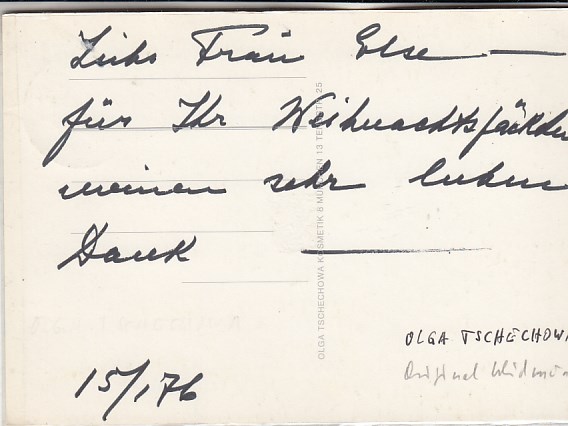 Liebe Frau Else —
für Ihr Weihnachtspäckchen
meinen sehr lieben
Dank
15/1 76
OLGA TSCHECHOWA KOSMETIK 8 MÜNCHEN 13 TEN
OLGA TSCHECHOW
Original Widmun